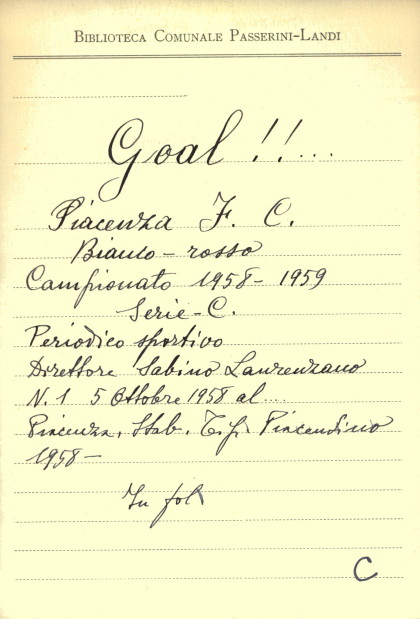 BIBLIOTECA COMUNALE PASSERINI-LANDI
Goal !!...
Piacenza F. C.
Bianco - rosso
Campionato 1958 - 1959
Serie - C.
Periodico sportivo
Direttore Sabino Laurenzano
N. 1 5 Ottobre 1958 al ...
Piacenza, Stab. Tip. Piacentino
1958 -
In fol
C